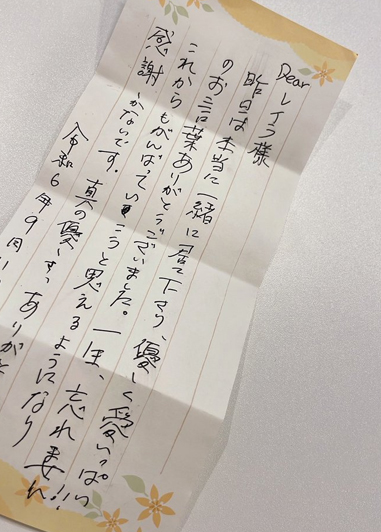 Dear レイラ様
昨日は本当に一緒に居て下さり、優しく愛いっぱい
のお言葉ありがとうございました。一生、忘れません!!
これからもがんばっていこうと思えるようになり
感謝しかないです。真の優しさ、ありがと
令和6年9月